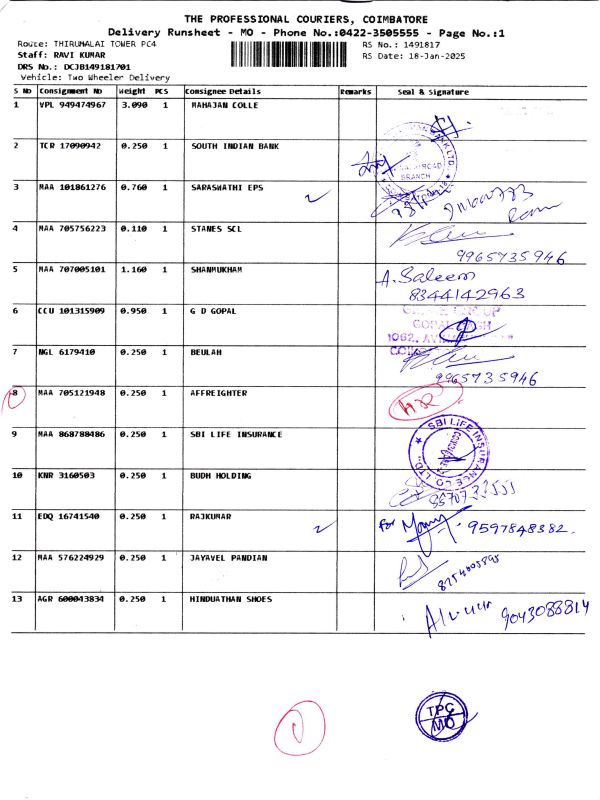 THE PROFESSIONAL COURIERS, COIMBATORE
Delivery Runsheet - MO - Phone No.:0422-3505555 - Page No.:1
Route: THIRUMALAI TOWER PC4 RS No.: 1491817
Staff: RAVI KUMAR RS Date: 18-Jan-2025
DRS No.: DCJB149181701
Vehicle: Two Wheeler Delivery
S No Consignment No Weight PCS Consignee Details Remarks Seal & Signature
1 VPL 949474967 3.090 1 MAHAJAN COLLE
2 TCR 17090942 0.250 1 SOUTH INDIAN BANK
BRANCH
3 MAA 101861276 0.760 1 SARASWATHI EPS
4 MAA 705756223 0.110 1 STANES SCL
9965735946
5 MAA 707005101 1.160 1 SHANMUKHAM A. Saleem
8344142963
6 CCU 101315909 0.950 1 G D GOPAL
1062,
7 NGL 6179410 0.250 1 BEULAH
9965735946
8 MAA 705121948 0.250 1 AFFREIGHTER
9 MAA 868788486 0.250 1 SBI LIFE INSURANCE SBI LIFE INSURANCE CO. LTD.
10 KNR 3160503 0.250 1 BUDH HOLDING
11 EDQ 16741540 0.250 1 RAJKUMAR for 9597848382
12 MAA 576224929 0.250 1 JAYAVEL PANDIAN
13 AGR 600043834 0.250 1 HINDUATHAN SHOES 9043088814
TPC
MO